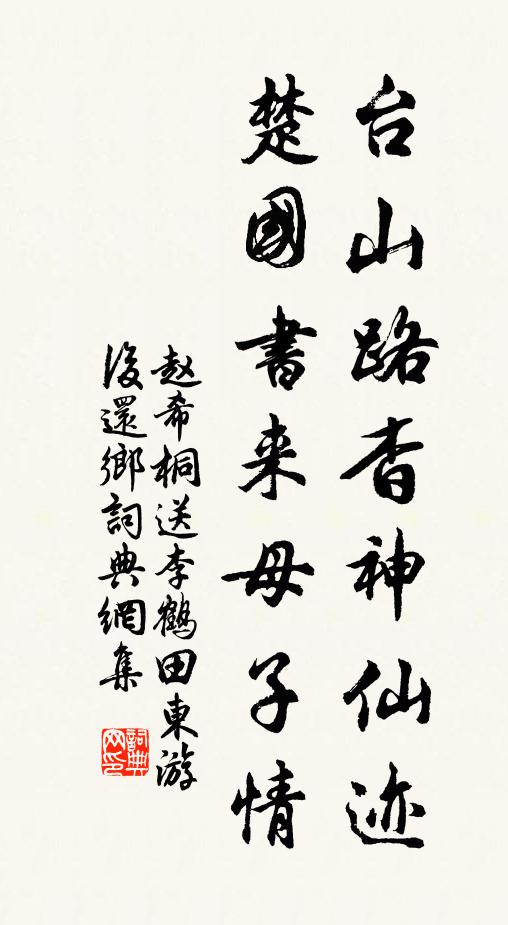 台山路杳神仙迹
楚國書来母子情
赵希桐送李鶴田東游
後還鄉詞典網集
詞典
网印